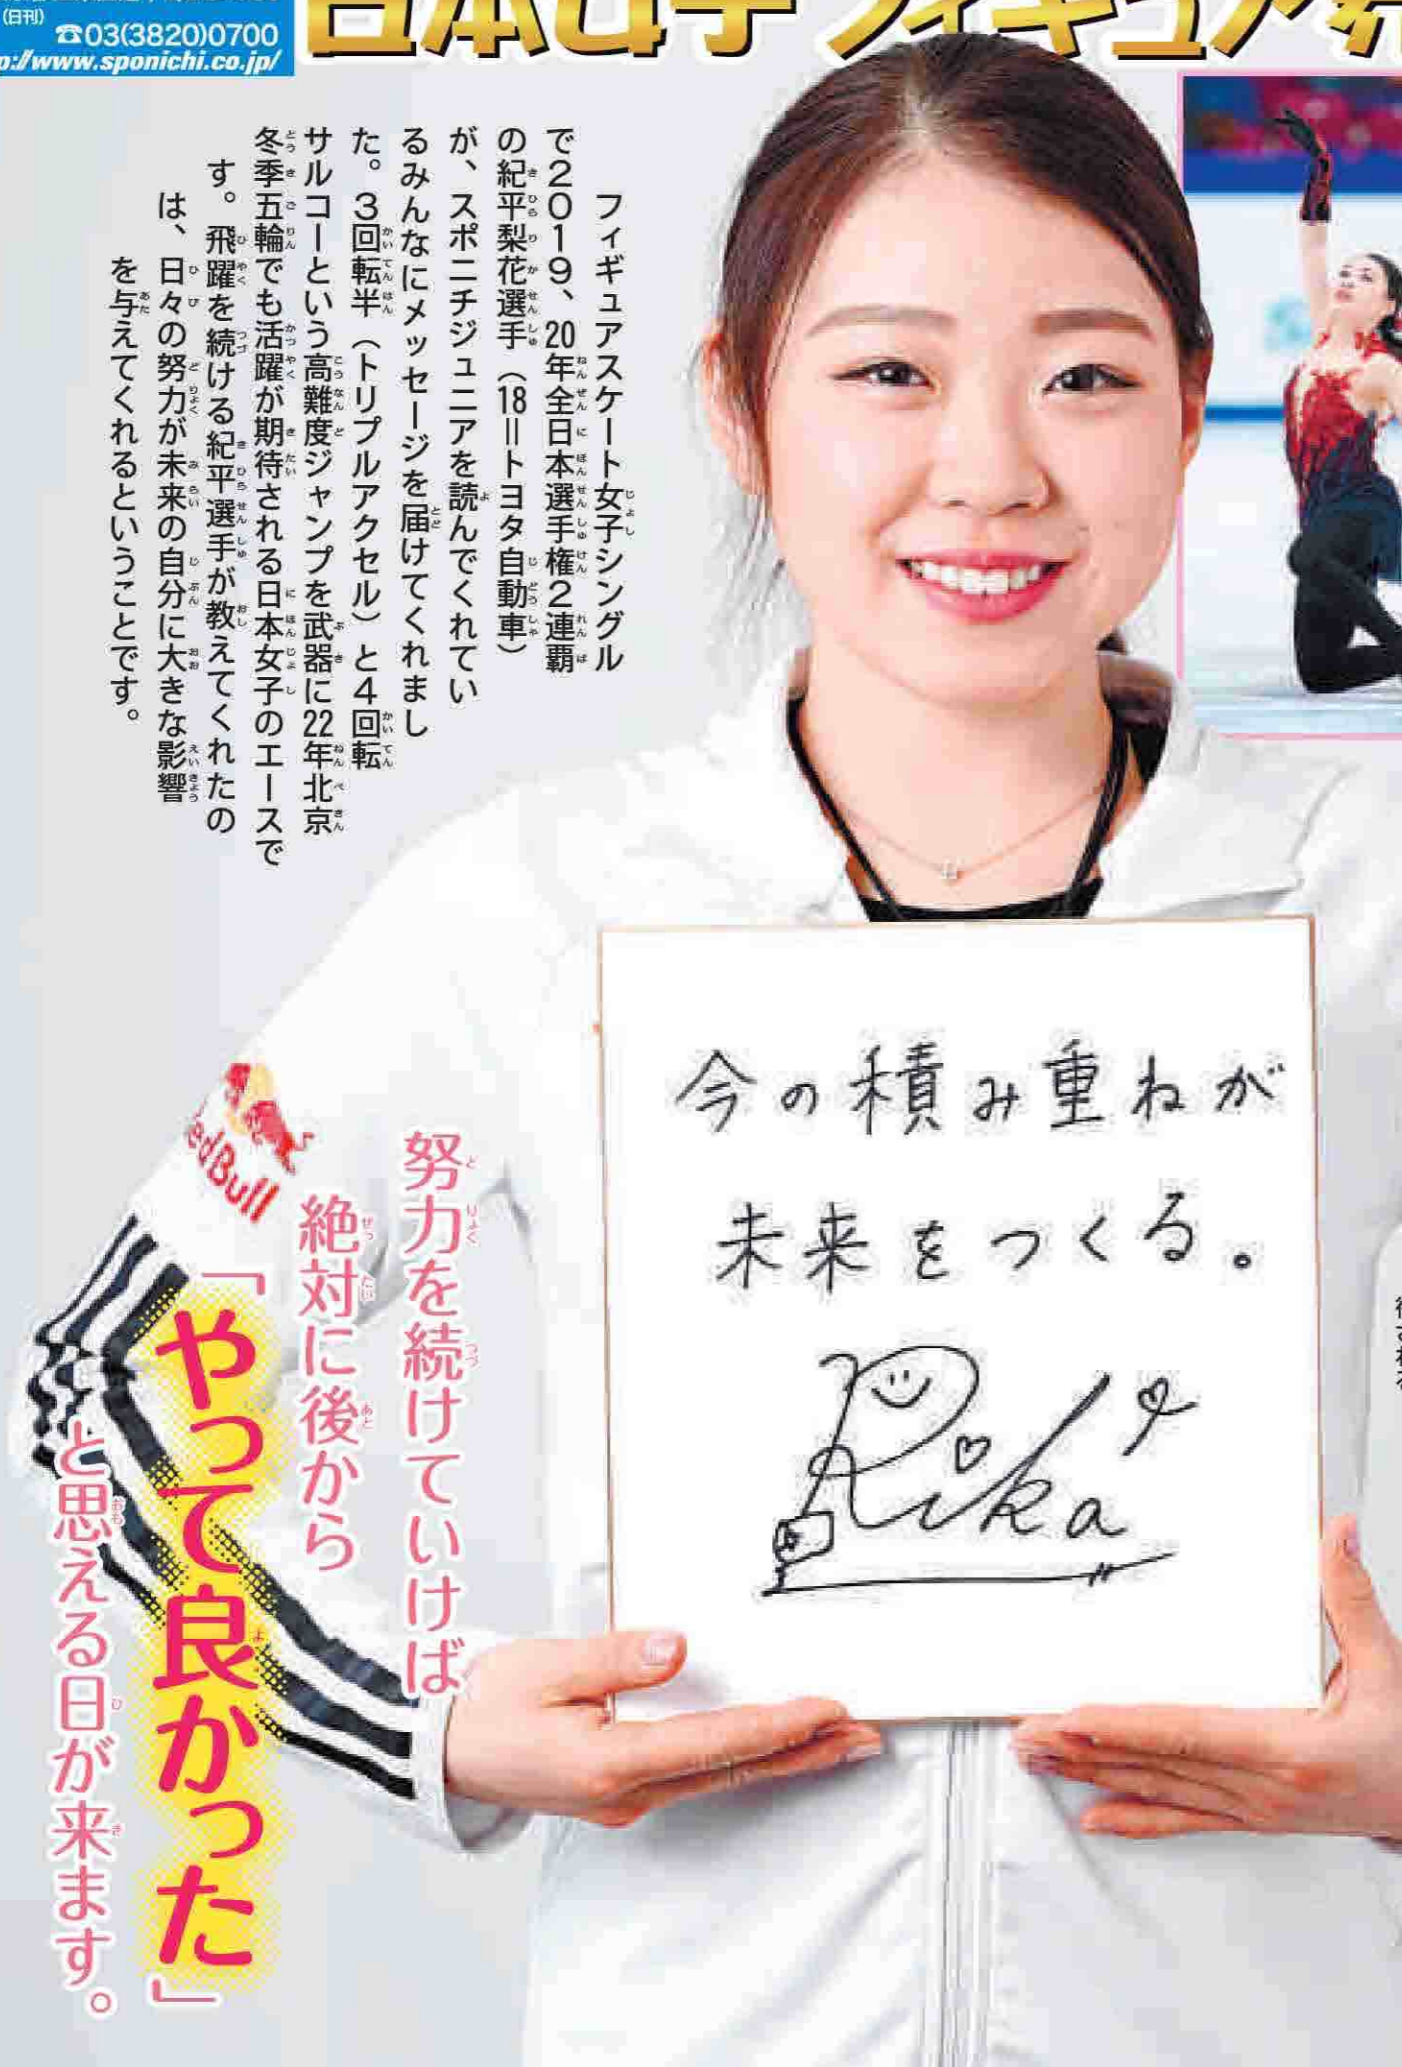 (日刊)
☎03(3820)0700
p://www.sponichi.co.jp/
日本女子フィギュア
フィギュアスケート女子シングル
で2019、20年全日本選手権2連覇
の紀平梨花選手(18=トヨタ自動車)
が、スポニチジュニアを読んでくれてい
るみんなにメッセージを届けてくれまし
た。3回転半(トリプルアクセル)と4回転
サルコーという高難度ジャンプを武器に22年北京
冬季五輪でも活躍が期待される日本女子のエースで
す。飛躍を続ける紀平選手が教えてくれたの
は、日々の努力が未来の自分に大きな影響
を与えてくれるということです。
今の積み重ねが
未来をつくる。
Rika
edBull
努力を続けていけば
絶対に後から
「やって良かった」
と思える日が来ます。